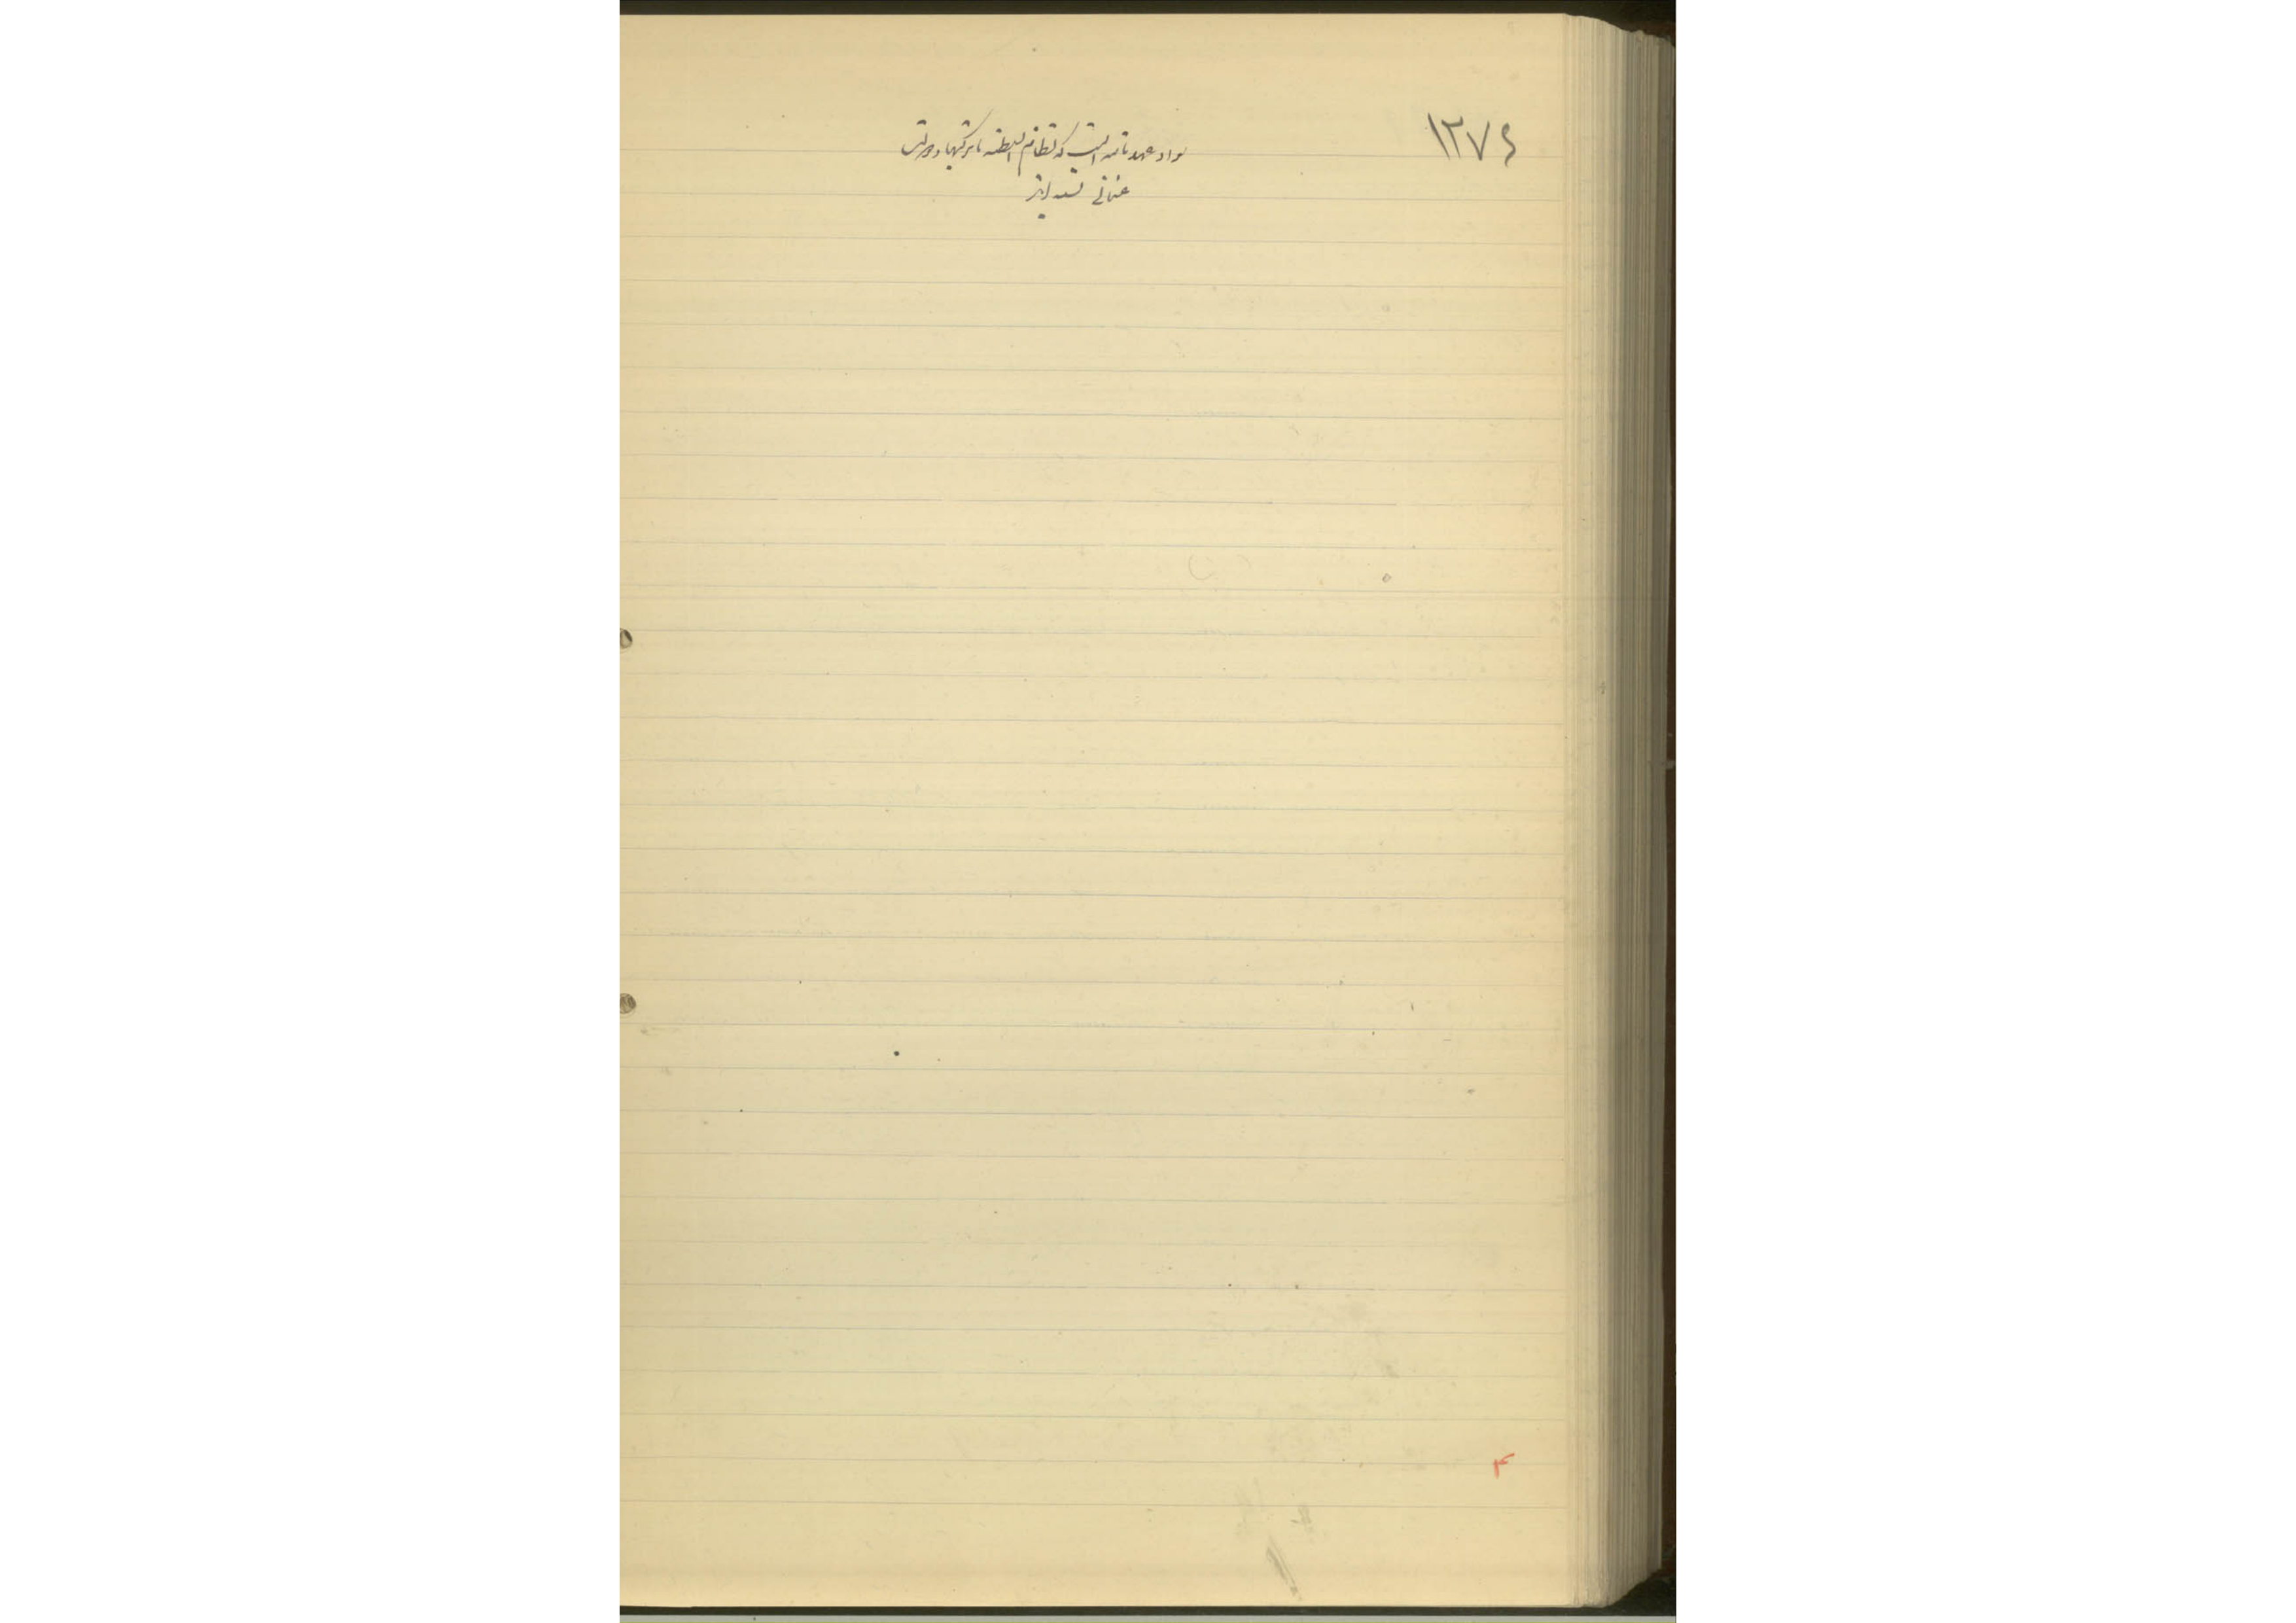 ١٢٧٤
سواد عهدنامه ایست که نظام السلطنه با ترکها و دولت
عثمانی بسته اند
٣